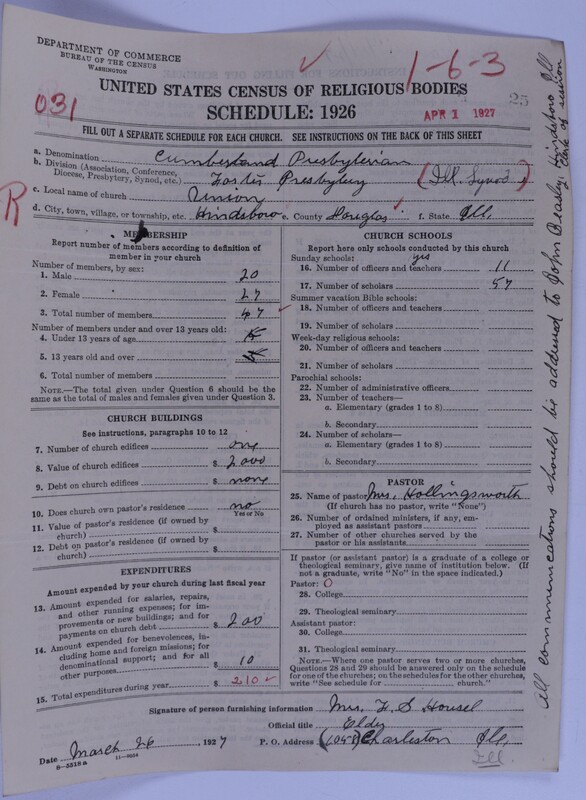 DEPARTMENT OF COMMERCE
BUREAU OF THE CENSUS
WASHINGTON
1-6-3
UNITED STATES CENSUS OF RELIGIOUS BODIES
031
SCHEDULE: 1926
APR 1 1927
25
FILL OUT A SEPARATE SCHEDULE FOR EACH CHURCH. SEE INSTRUCTIONS ON THE BACK OF THIS SHEET
a. Denomination Cumberland Presbyterian
b. Division (Association, Conference, Diocese, Presbytery, Synod, etc.) Foster Presbytery (Ill. Synod)
c. Local name of church Union
R
d. City, town, village, or township, etc. Hindsboro e. County Douglas f. State Ill.
MEMBERSHIP
Report number of members according to definition of
member in your church
Number of members, by sex:
1. Male 20
2. Female 27
3. Total number of members 47
Number of members under and over 13 years old:
4. Under 13 years of age
5. 13 years old and over
6. Total number of members
NOTE.—The total given under Question 6 should be the
same as the total of males and females given under Question 3.
CHURCH BUILDINGS
See instructions, paragraphs 10 to 12
7. Number of church edifices one
8. Value of church edifices $ 2000
9. Debt on church edifices $ none
10. Does church own pastor's residence? no
Yes or No
11. Value of pastor's residence (if owned by
church) $
12. Debt on pastor's residence (if owned by
church) $
EXPENDITURES
Amount expended by your church during last fiscal year
13. Amount expended for salaries, repairs,
and other running expenses; for im-
provements or new buildings; and for
payments on church debt $ 200
14. Amount expended for benevolences, in-
cluding home and foreign missions; for
denominational support; and for all
other purposes $ 10
15. Total expenditures during year $ 210
CHURCH SCHOOLS
Report here only schools conducted by this church
Sunday schools: yes
16. Number of officers and teachers 11
17. Number of scholars 57
Summer vacation Bible schools:
18. Number of officers and teachers
19. Number of scholars
Week-day religious schools:
20. Number of officers and teachers
21. Number of scholars
Parochial schools:
22. Number of administrative officers
23. Number of teachers—
a. Elementary (grades 1 to 8)
b. Secondary
24. Number of scholars—
a. Elementary (grades 1 to 8)
b. Secondary
PASTOR
25. Name of pastor Mrs. Hollingsworth
(If church has no pastor, write "None")
26. Number of ordained ministers, if any, em-
ployed as assistant pastors
27. Number of other churches served by the
pastor or his assistants
If pastor (or assistant pastor) is a graduate of a college or
theological seminary, give name of institution below. (If
not a graduate, write "No" in the space indicated.)
Pastor: O
28. College
29. Theological seminary
Assistant pastor:
30. College
31. Theological seminary
NOTE.—Where one pastor serves two or more churches,
Questions 28 and 29 should be answered only on the schedule
for one of the churches; on the schedules for the other churches,
write "See schedule for ____ church."
Signature of person furnishing information Mrs. F S Housel
Official title Elder
Date March 26, 1927 P. O. Address Charleston Ill.
Ill.
8-5518a 11-9684
All communications should be addressed to John Bearly, Hindsboro Ill
Clerk of session